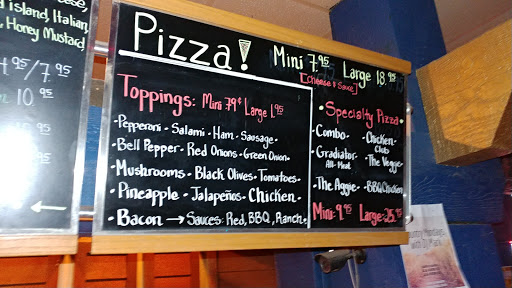 d island, Italian,
, Honey Mustard,
4.95/7.95
10.95
Pizza!
Mini 7.95 Large 18.95
[Cheese & Sauce]
Toppings: Mini 79¢ Large 1.95
•Pepperoni • Salami • Ham • Sausage•
•Bell Pepper • Red Onions • Green Onion•
•Mushrooms • Black Olives • Tomatoes•
•Pineapple • Jalapeños • Chicken•
•Bacon → Sauces: Red, BBQ, Ranch•
•Specialty Pizza•
•Combo
•Chicken Club
•Gradiator All-Meat
•The Veggie
•The Aggie
•BBQ Chicken
Mini: 9.95 Large: 25.95